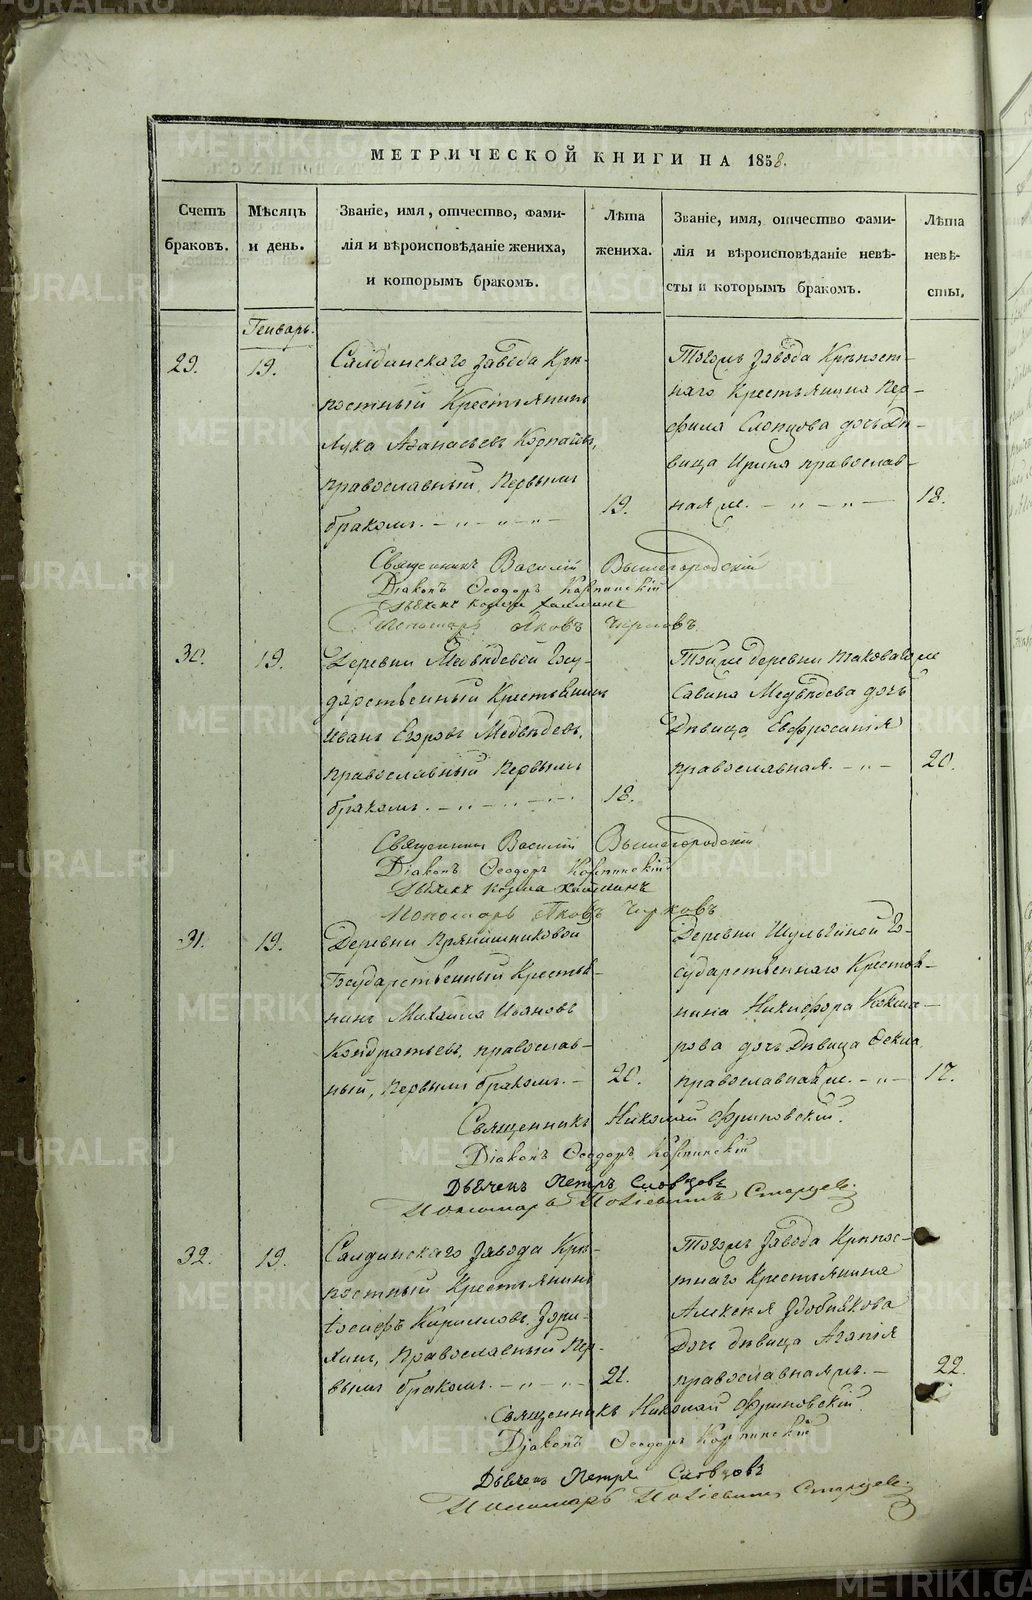 МЕТРИЧЕСКОЙ КНИГИ НА 1858.
Счетъ браковъ.
Мѣсяцъ и день.
Званіе, имя, отчество, фами-
лія и вѣроисповѣданіе жениха,
и которымъ бракомъ.
Лѣта жениха.
Званіе, имя, отчество фами-
лія и вѣроисповѣданіе невѣ-
сты и которымъ бракомъ.
Лѣта невѣ-
сты.
Генварь.
29.
19.
Салдинскаго завода Крѣ-
постный Крестьянинъ
Лука Аѳанасьевъ
православный, Первымъ
бракомъ.
19.
Тогожъ завода Крѣпост-
наго Крестьянина Пер-
фила Слепцова дочь Дѣ-
вица Ирина православ-
ная же.
18.
Священникъ Василій Вышегородскій
Діаконъ Ѳеодоръ Карпинскій
Дьячекъ Козма Хаминъ
Пономарь Яковъ Чирковъ
30.
19.
Деревни Медвѣдевой Госу-
дарственный Крестьянинъ
Иванъ Егоровъ Медвѣдевъ,
православный Первымъ
бракомъ.
18.
Тойже деревни таковагоже
Савина Медвѣдева дочь
Дѣвица Евфросинія
православная.
20.
Священникъ Василій Вышегородскій
Діаконъ Ѳеодоръ Карпинскій
Дьячекъ Козма Хаминъ
Пономарь Яковъ Чирковъ
31.
19.
Деревни Прянишниковой
Государственный Крестья-
нинъ Михаилъ Ивановъ
Кондратьевъ, православ-
ный, Первымъ бракомъ.
20.
Деревни Шульгиной Го-
сударственнаго Крестья-
нина Никифора Кокша-
рова дочь Дѣвица Ѳекла,
православная же.
17.
Священникъ Николай Фриновскій.
Діаконъ Ѳеодоръ Карпинскій
Дьячекъ Петръ Словцовъ
Пономарь Старцевъ.
32.
19.
Салдинскаго Завода Крѣ-
постный Крестьянинъ
Іосифъ Кирилловъ Зори-
хинъ, Православный Пер-
вымъ бракомъ.
21.
Тогожъ Завода Крѣпос-
тнаго Крестьянина
Алексѣя Здобнякова
Дочь дѣвица Агапія
православнаяжъ.
22.
Священникъ Николай Фриновскій.
Діаконъ Ѳеодоръ Карпинскій
Дьячекъ Петръ Словцовъ
Пономарь Старцевъ.
METRIKI.GASO-URAL.RU